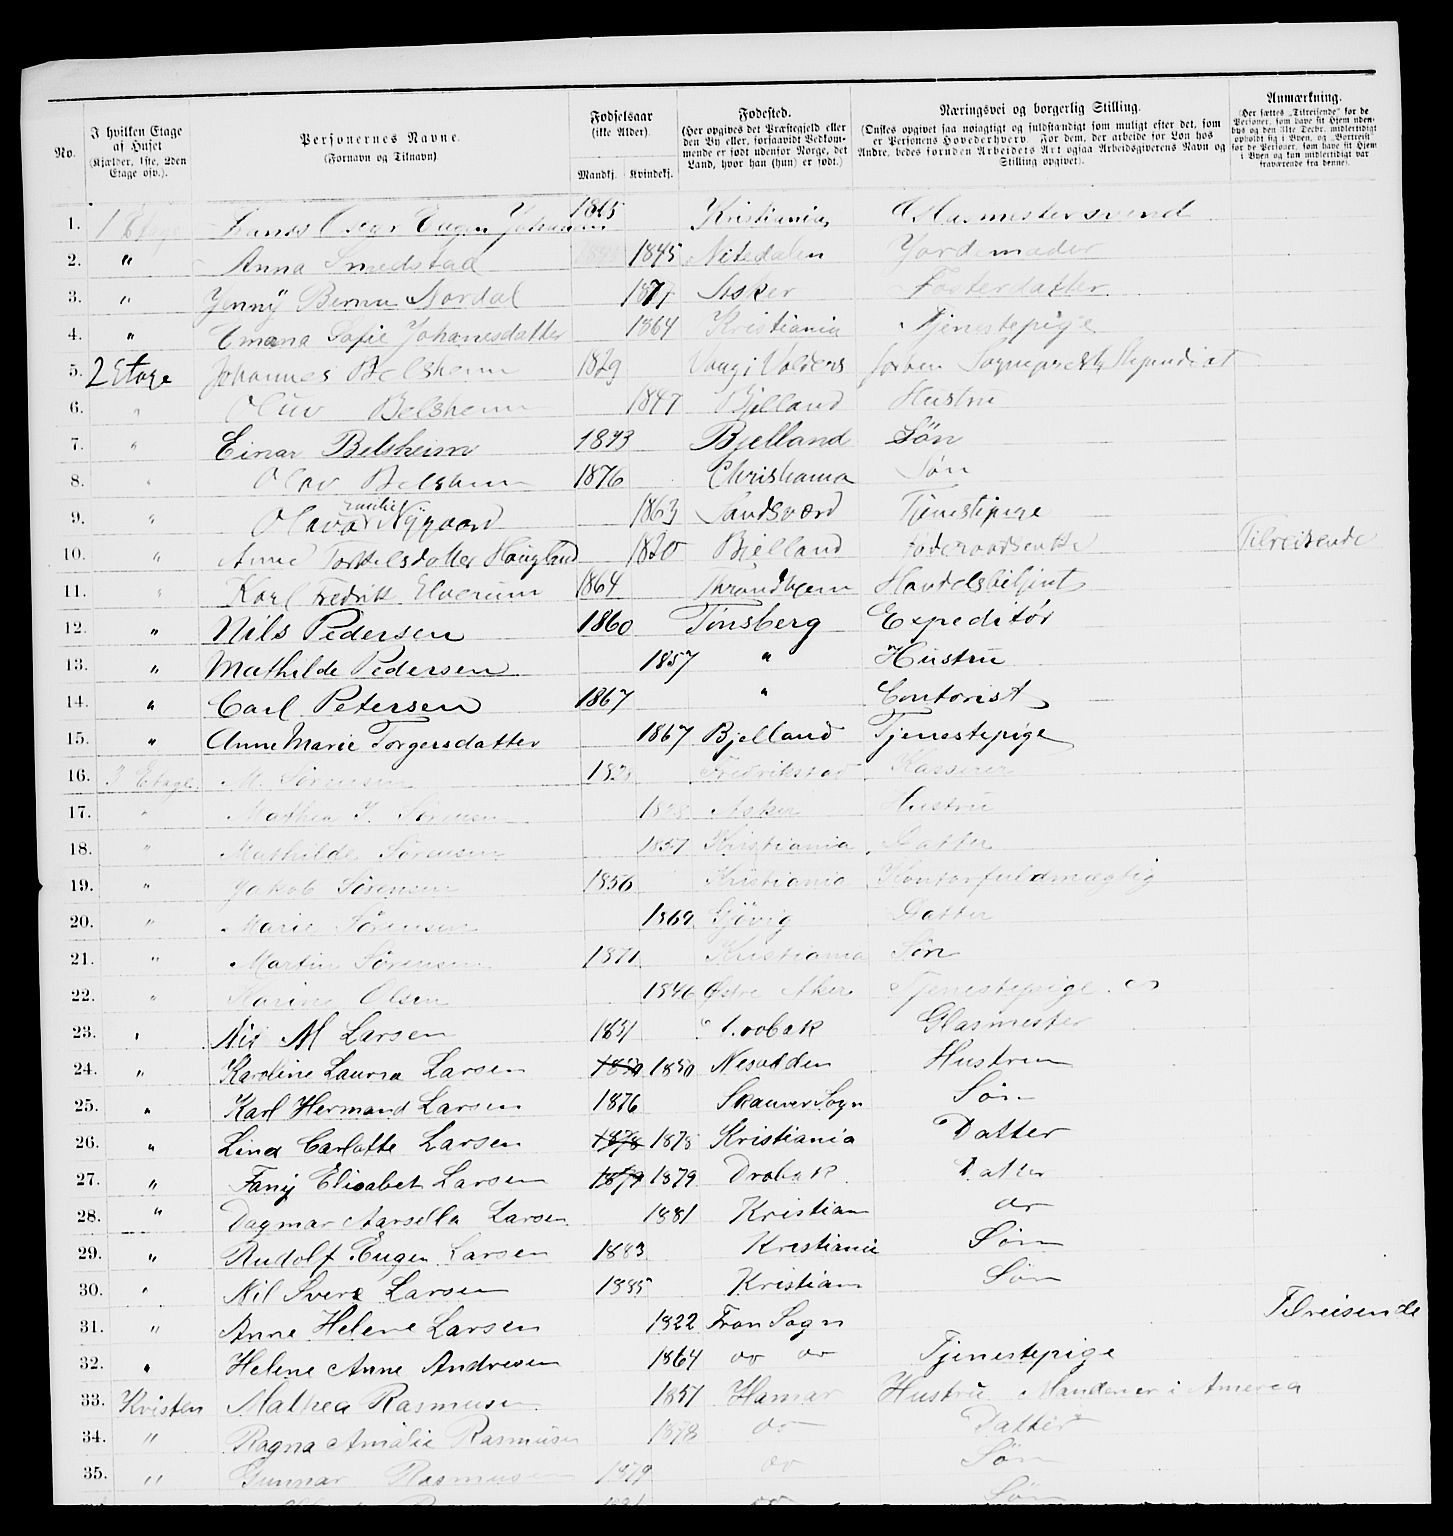 No.
I hvilken Etage af Huset (Kjælder, 1ste, 2den Etage osv.).
Personernes Navne. (Fornavn og Tilnavn)
Fødselsaar (ikke Alder).
Mandkj. Kvindekj.
Fødested. (Her opgives det Præstegjeld eller den By eller, forsaavidt Vedkommende er født udenfor Norge, det Land, hvor han (hun) er født.)
Næringsvei og borgerlig Stilling. (Ønskes opgivet saa nøiagtig og fuldstændigt som muligt efter det, som er Personens Hovederhverv. For dem, der arbeide for Løn hos Andre, bedes foruden Arbeidets Art ogsaa Arbeidsgiverens Navn og Stilling opgivet).
Anmærkning. (Her sættes „Tilreisende" for de Personer, som have sit Hjem udenbys og den 31te Decbr. midlertidigt opholdt sig i Byen, og „Bortreist" for de Personer, som have sit Hjem i Byen og kun midlertidigt var fraværende fra denne).
1. 1 Etage Eugen Johansen 1865 Kristiania Glasmestersvend
2. " Anna Smedstad 1845 Nitedalen Jordemoder
3. " Jenny Nordal Asker Fosterdatter
4. " Sofie Johanesdatter 1864 Kristiania Tjenestepige
5. 2 Etage Johannes Belsheim 1829 Vang i Valders forhen Sogneprest, Stipendiat
6. " Oluv Belsheim 1847 Bjelland Hustru
7. " Einar Belsheim 1873 Bjelland Søn
8. " Olav Belsheim 1876 Christiania Søn
9. " Olava Nygaard 1863 Sandsværd Tjenestepige
10. " Anne Torkelsdatter Haugland 1820 Bjelland Føderaadsenke Tilreisende
11. " Karl Fredrik Elverum 1864 Throndhjem Handelsbetjent
12. " Nils Pedersen 1860 Tønsberg Expeditør
13. " Mathilde Pedersen 1857 " Hustru
14. " Carl Petersen 1867 " Contorist
15. " Anne Marie Torgersdatter 1867 Bjelland Tjenestepige
16. 3 Etage M. Sørensen Fredrikstad Kasserer
17. " Mathea Sørensen Asker Hustru
18. " Mathilde Sørensen 1857 Kristiania Datter
19. " Jakob Sørensen 1856 Kristiania Kontorfuldmægtig
20. " Marie Sørensen 1869 Gjövig Datter
21. " Martin Sørensen 1871 Kristiania Søn
22. " Karine Olsen 1846 Østre Aker Tjenestepige
23. " M Larsen 1851 Glasmester
24. " Karoline Laura Larsen 1850 1850 Nesodden Hustru
25. " Karl Hermand Larsen 1876 Skauver Sogn Søn
26. " Lina Carlotte Larsen 1878 1878 Kristiania Datter
27. " Fany Elisabet Larsen 1879 1879 Drøbak Datter
28. " Dagmar Larsen 1881 Kristian do
29. " Rudolf Eugen Larsen 1883 Kristiania Søn
30. " Nil Svere Larsen 1885 Kristian Søn
31. " Anne Helene Larsen 1822 Fron Sogn Tilreisende
32. " Helene Anne Andresen 1864 do do Tjenestepige
33. Kvisten Mathea Rasmusen 1851 Hamar Hustru, Manden er i Amerca
34. " Ragna Amalie Rasmusen 1878 do Datter
35. " Gunnar Rasmusen 1879 do Søn
do Søn